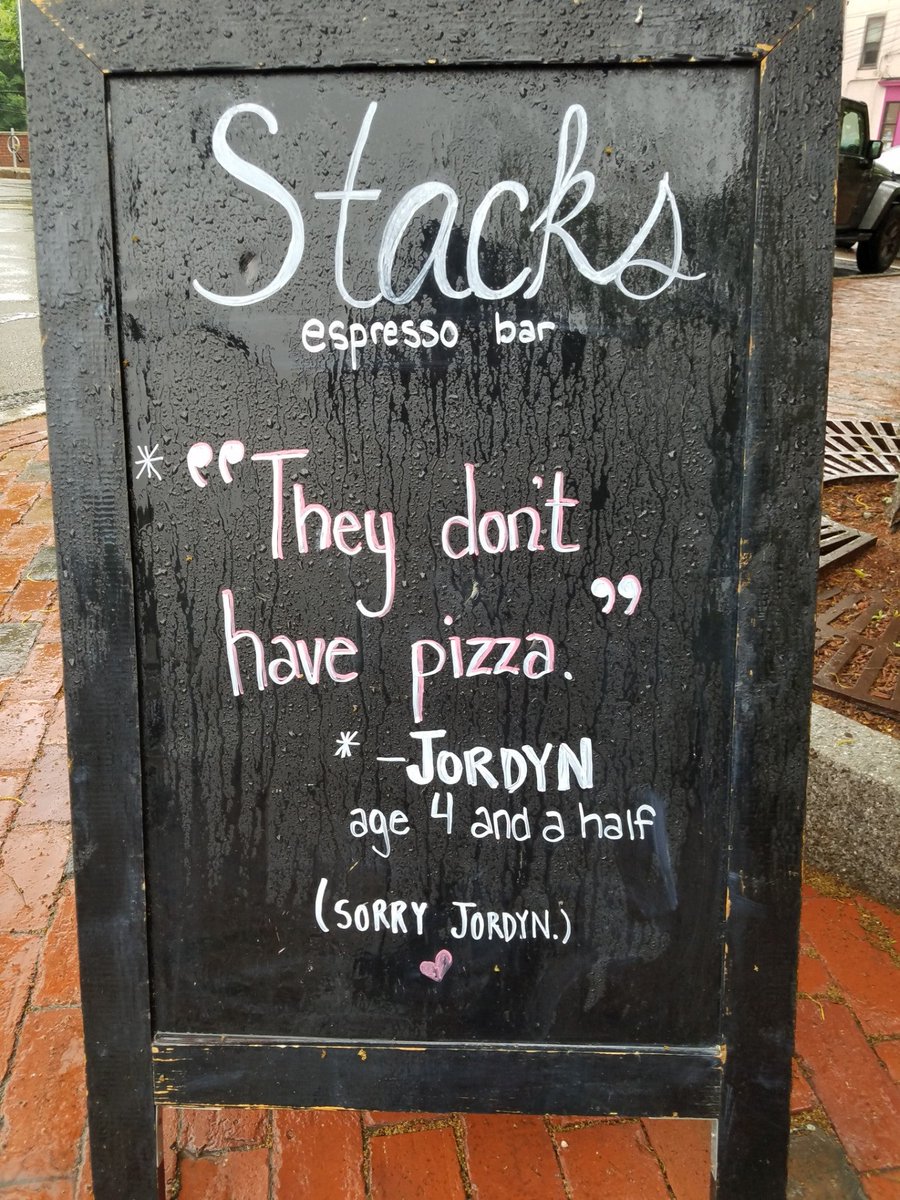 Stacks
espresso bar
* "They don't
have pizza."
* -JORDYN
age 4 and a half
(SORRY JORDYN.)